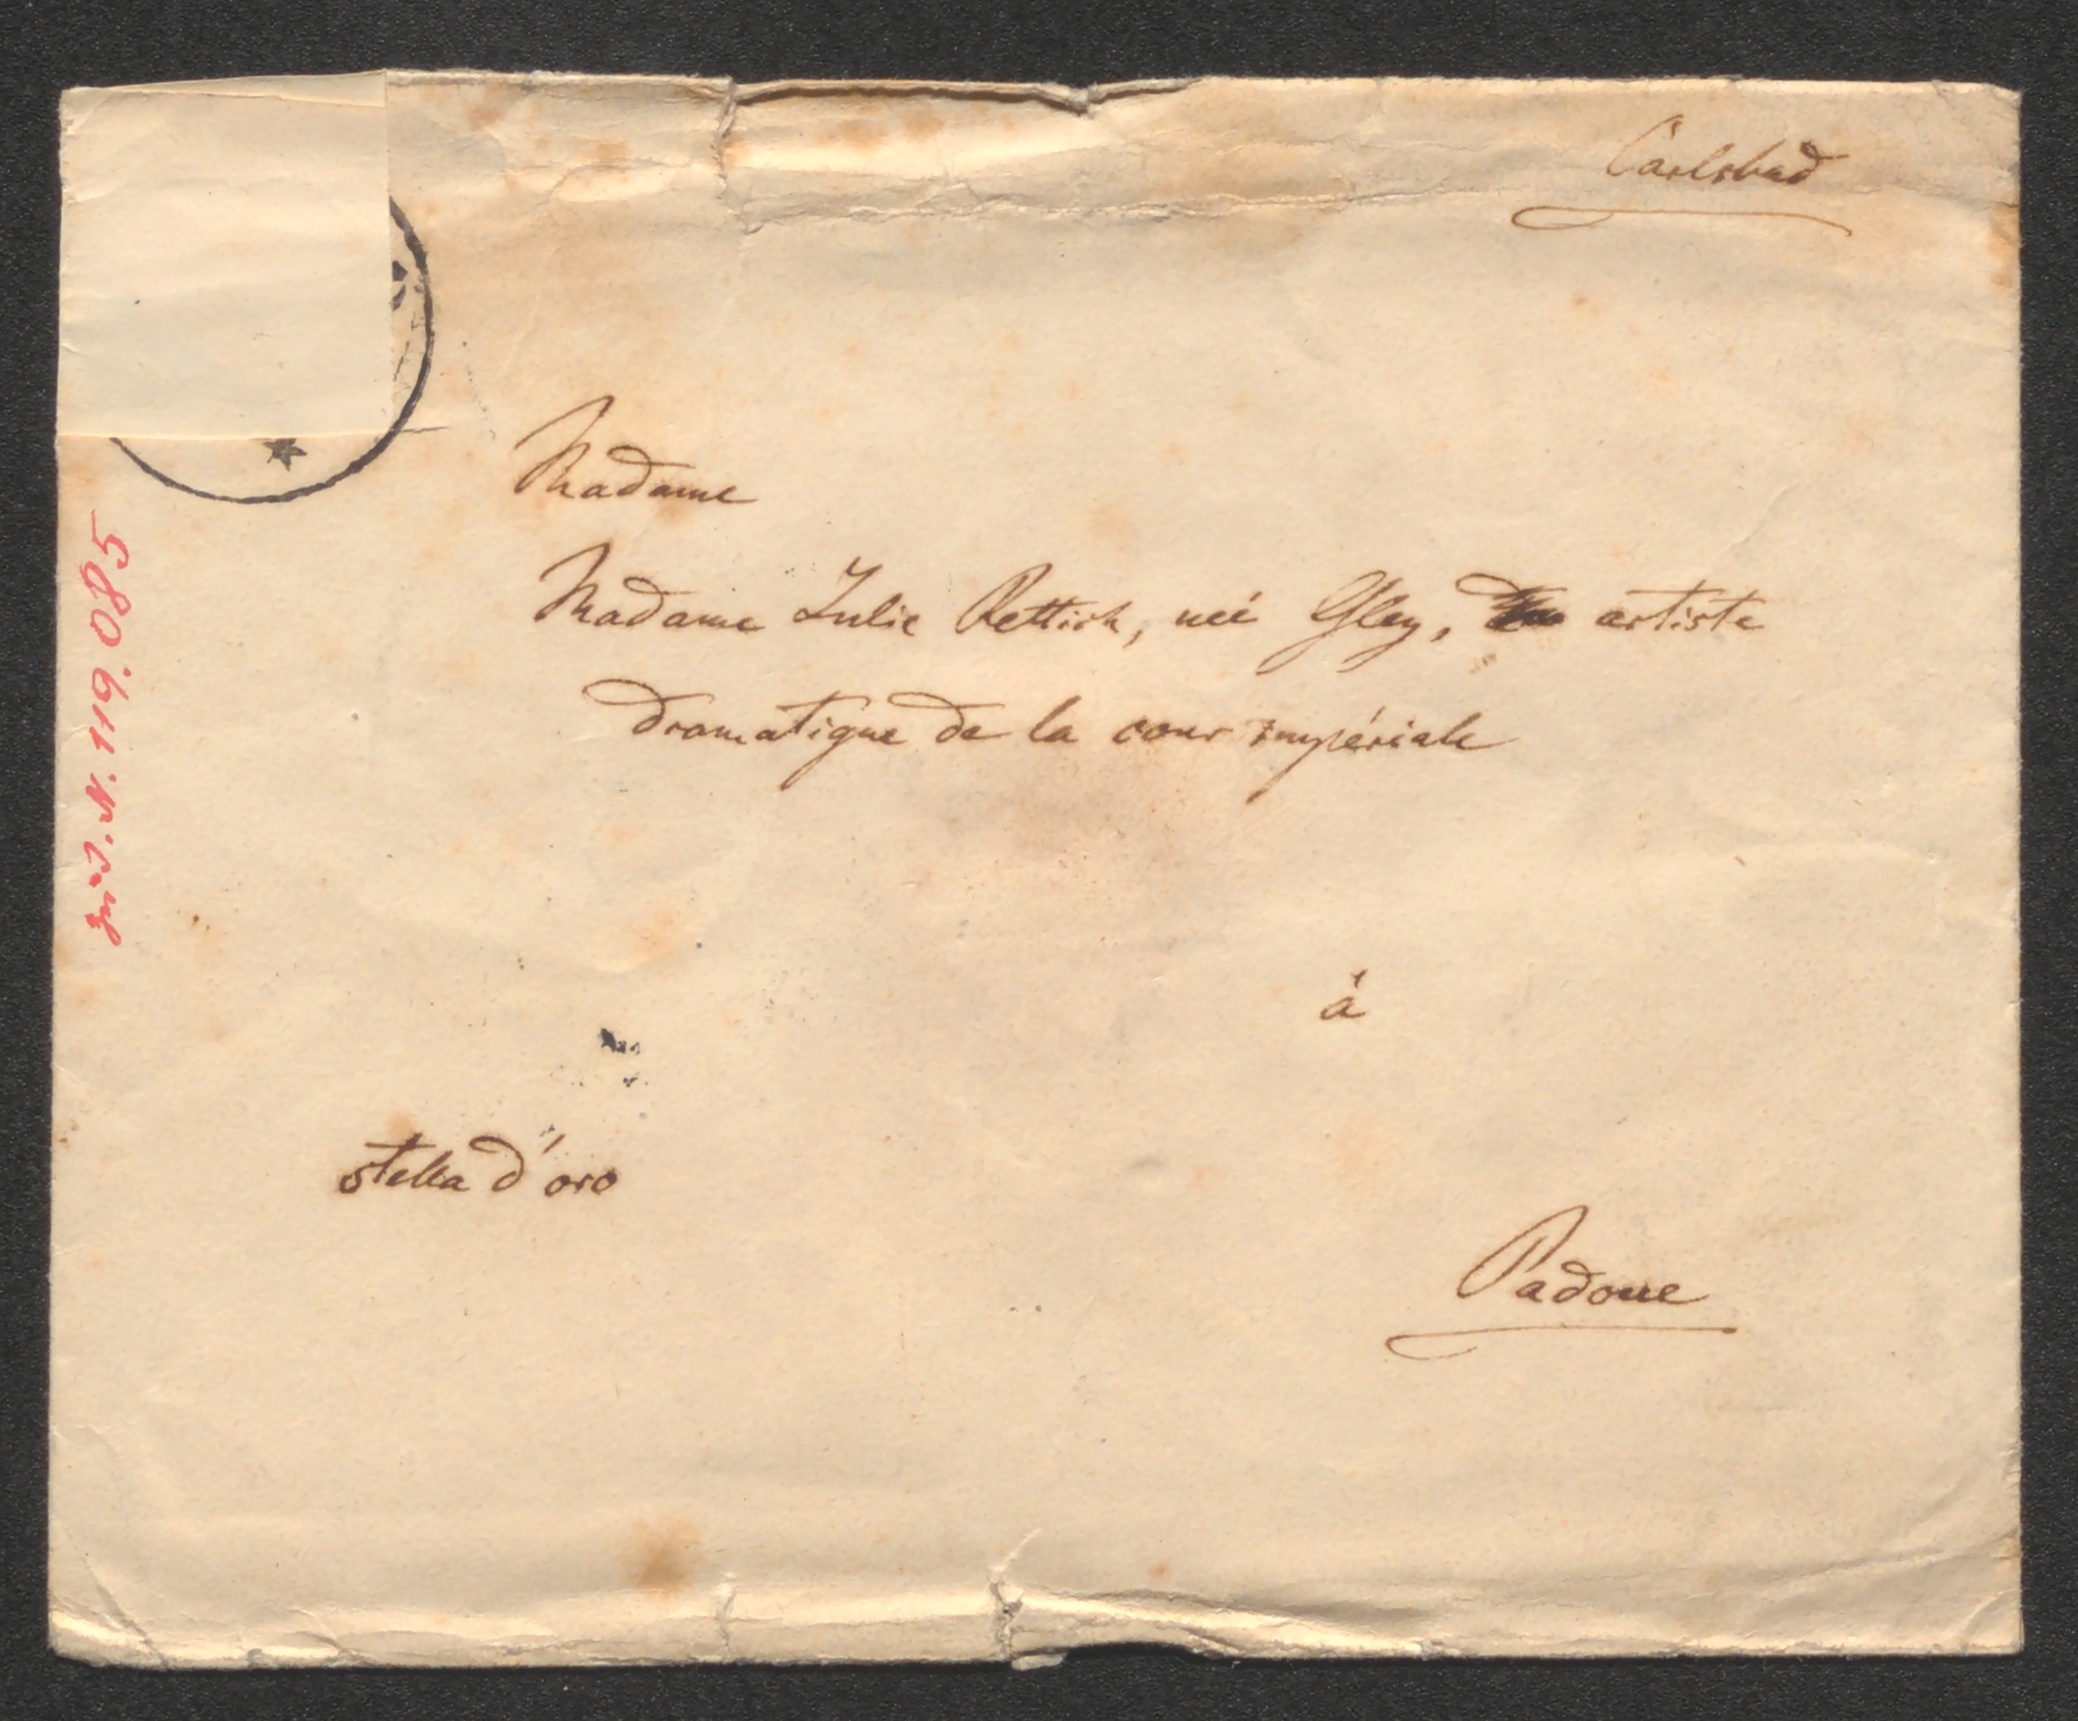 Carlsbad
Madame
Madame Julie Rettich, neé Gley, artiste
dramatique de la cour impériale
à
stella d'oro
Padoue
zu J. N. 119.085